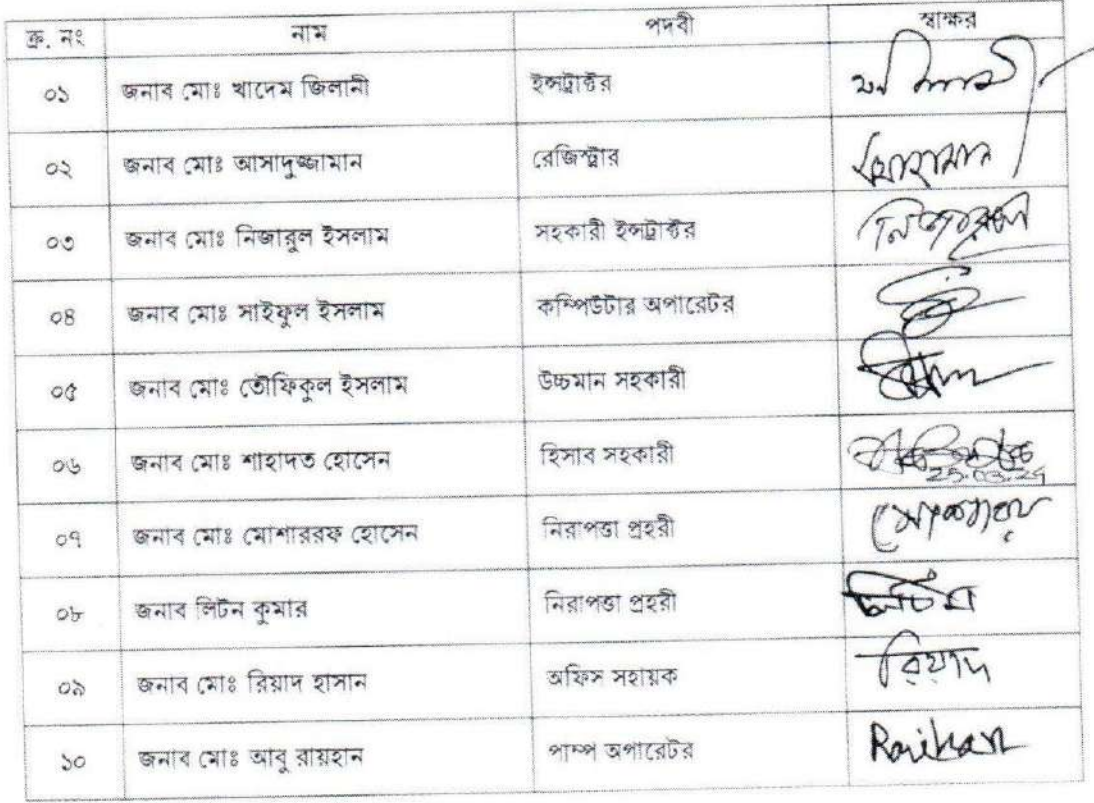 ক্র. নং নাম পদবী স্বাক্ষর
০১ জনাব মোঃ খাদেম জিলানী ইন্সট্রাক্টর
০২ জনাব মোঃ আসাদুজ্জামান রেজিস্ট্রার
০৩ জনাব মোঃ নিজারুল ইসলাম সহকারী ইন্সট্রাক্টর
০৪ জনাব মোঃ সাইফুল ইসলাম কম্পিউটার অপারেটর
০৫ জনাব মোঃ তৌফিকুল ইসলাম উচ্চমান সহকারী
০৬ জনাব মোঃ শাহাদত হোসেন হিসাব সহকারী
০৭ জনাব মোঃ মোশাররফ হোসেন নিরাপত্তা প্রহরী
০৮ জনাব লিটন কুমার নিরাপত্তা প্রহরী লিটন
০৯ জনাব মোঃ রিয়াদ হাসান অফিস সহায়ক রিয়াদ
১০ জনাব মোঃ আবু রায়হান পাম্প অপারেটর Raihan